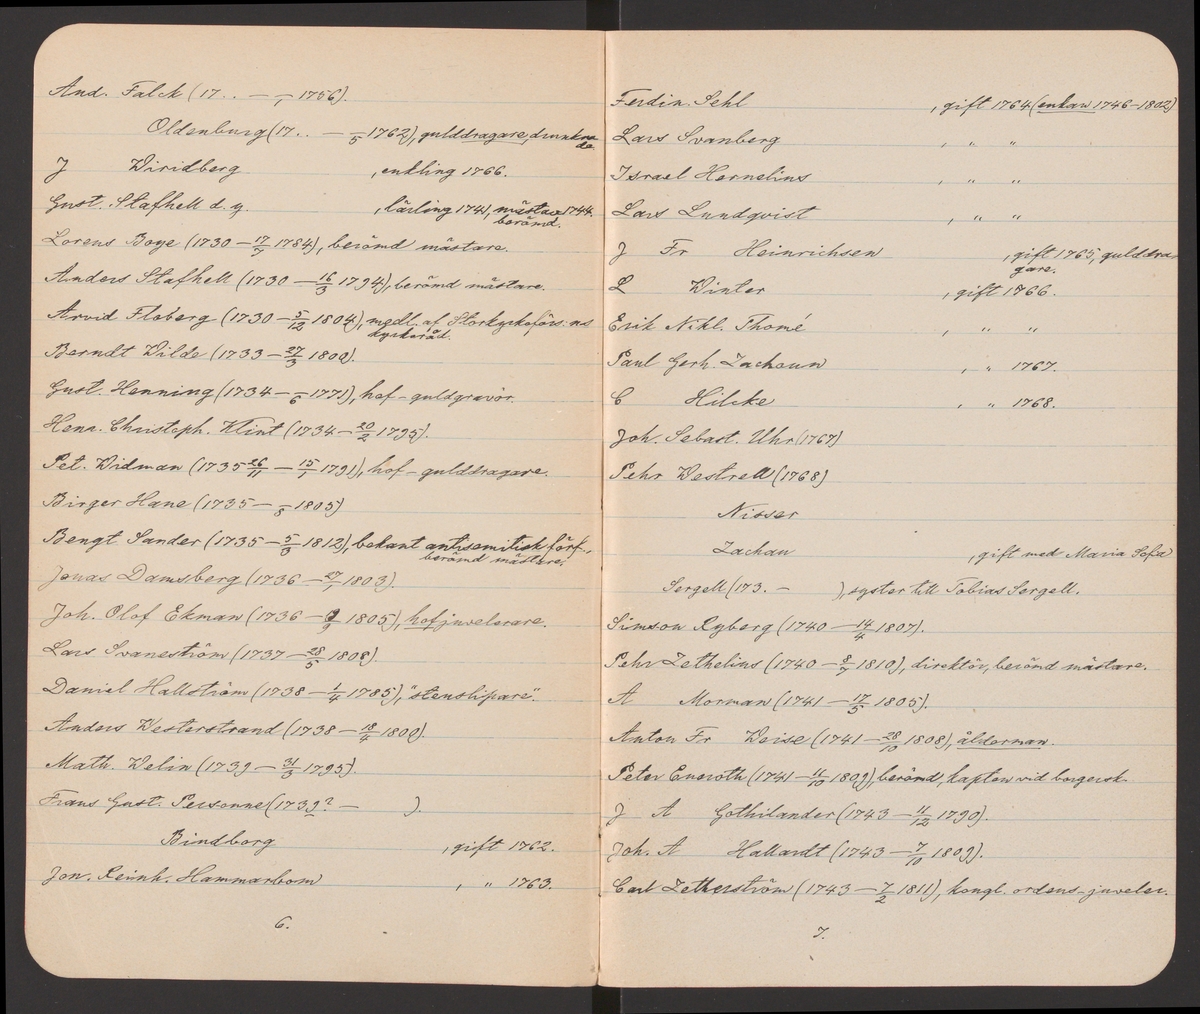 And. Falck (17.. — –/, 1756).
Oldenburg (17.. — –/5 1762), gulddragare, drunkna
de.
J Wiridberg , enkling 1766.
Gust. Stafhell d. y. , lärling 1741, mästare 1744.
berömd.
Lorens Boye (1730 — 17/7 1784), berömd mästare.
Anders Stafhell (1730 — 16/3 1794), berömd mästare.
Arvid Floberg (1730 — 5/12 1804), medl. af Storkyrkoförs:ns
kyrkoråd.
Berndt Wilde (1733 — 27/3 1800).
Gust. Henning (1734 — –/6 1771), hof-guldgravör.
Henr. Christoph. Klint (1734 — 20/2 1795).
Pet. Widman (1735 26/11 — 15/1 1791), hof-gulddragare.
Birger Hane (1735 — –/8 1805)
Bengt Sander (1735 — 5/3 1812), bekant antisemitisk förf.,
berömd mästare.
Jonas Damsberg (1736 — 27/1 1803).
Joh. Olof Ekman (1736 — 1805), hofjuvelerare.
Lars Svaneström (1737 — 28/5 1808).
Daniel Hallström (1738 — 1/4 1785), "stenslipare".
Anders Westerstrand (1738 — 18/4 1800).
Math. Welin (1739 — 31/3 1795).
Frans Gust. Personne (1739? — ).
Bindborg , gift 1762.
Jon. Reinh. Hammarbom , " 1763.
6.
Ferdin. Sehl , gift 1764 (enkan 1746–1802)
Lars Svanberg , " "
Israel Hernelius , " "
Lars Lundqvist , " "
J Fr Heinrichsen , gift 1765, gulddra-
gare.
L Winter , gift 1766.
Erik Nikl. Thomé , " "
Paul Gerh. Zachoun , " 1767.
C Hilcke , " 1768.
Joh. Sebast. Uhr (1767)
Pehr Westrell (1768)
Nisser
Zachau , gift med Maria Sofia
Sergell (173. – ), syster till Tobias Sergell.
Simson Ryberg (1740 — 14/4 1807).
Pehr Zethelius (1740 — 8/1 1810), direktör, berömd mästare.
A Morman (1741 — 17/5 1805).
Anton Fr Weise (1741 — 28/10 1808), ålderman.
Peter Eneroth (1741 — 11/10 1809), berömd, kapten vid borgersk.
J A Gothilander (1743 — 11/12 1790).
Joh. A Hallardt (1743 — 7/10 1809).
Carl Zetherström (1743 — 7/2 1811), kongl. ordens-juveler.
7.